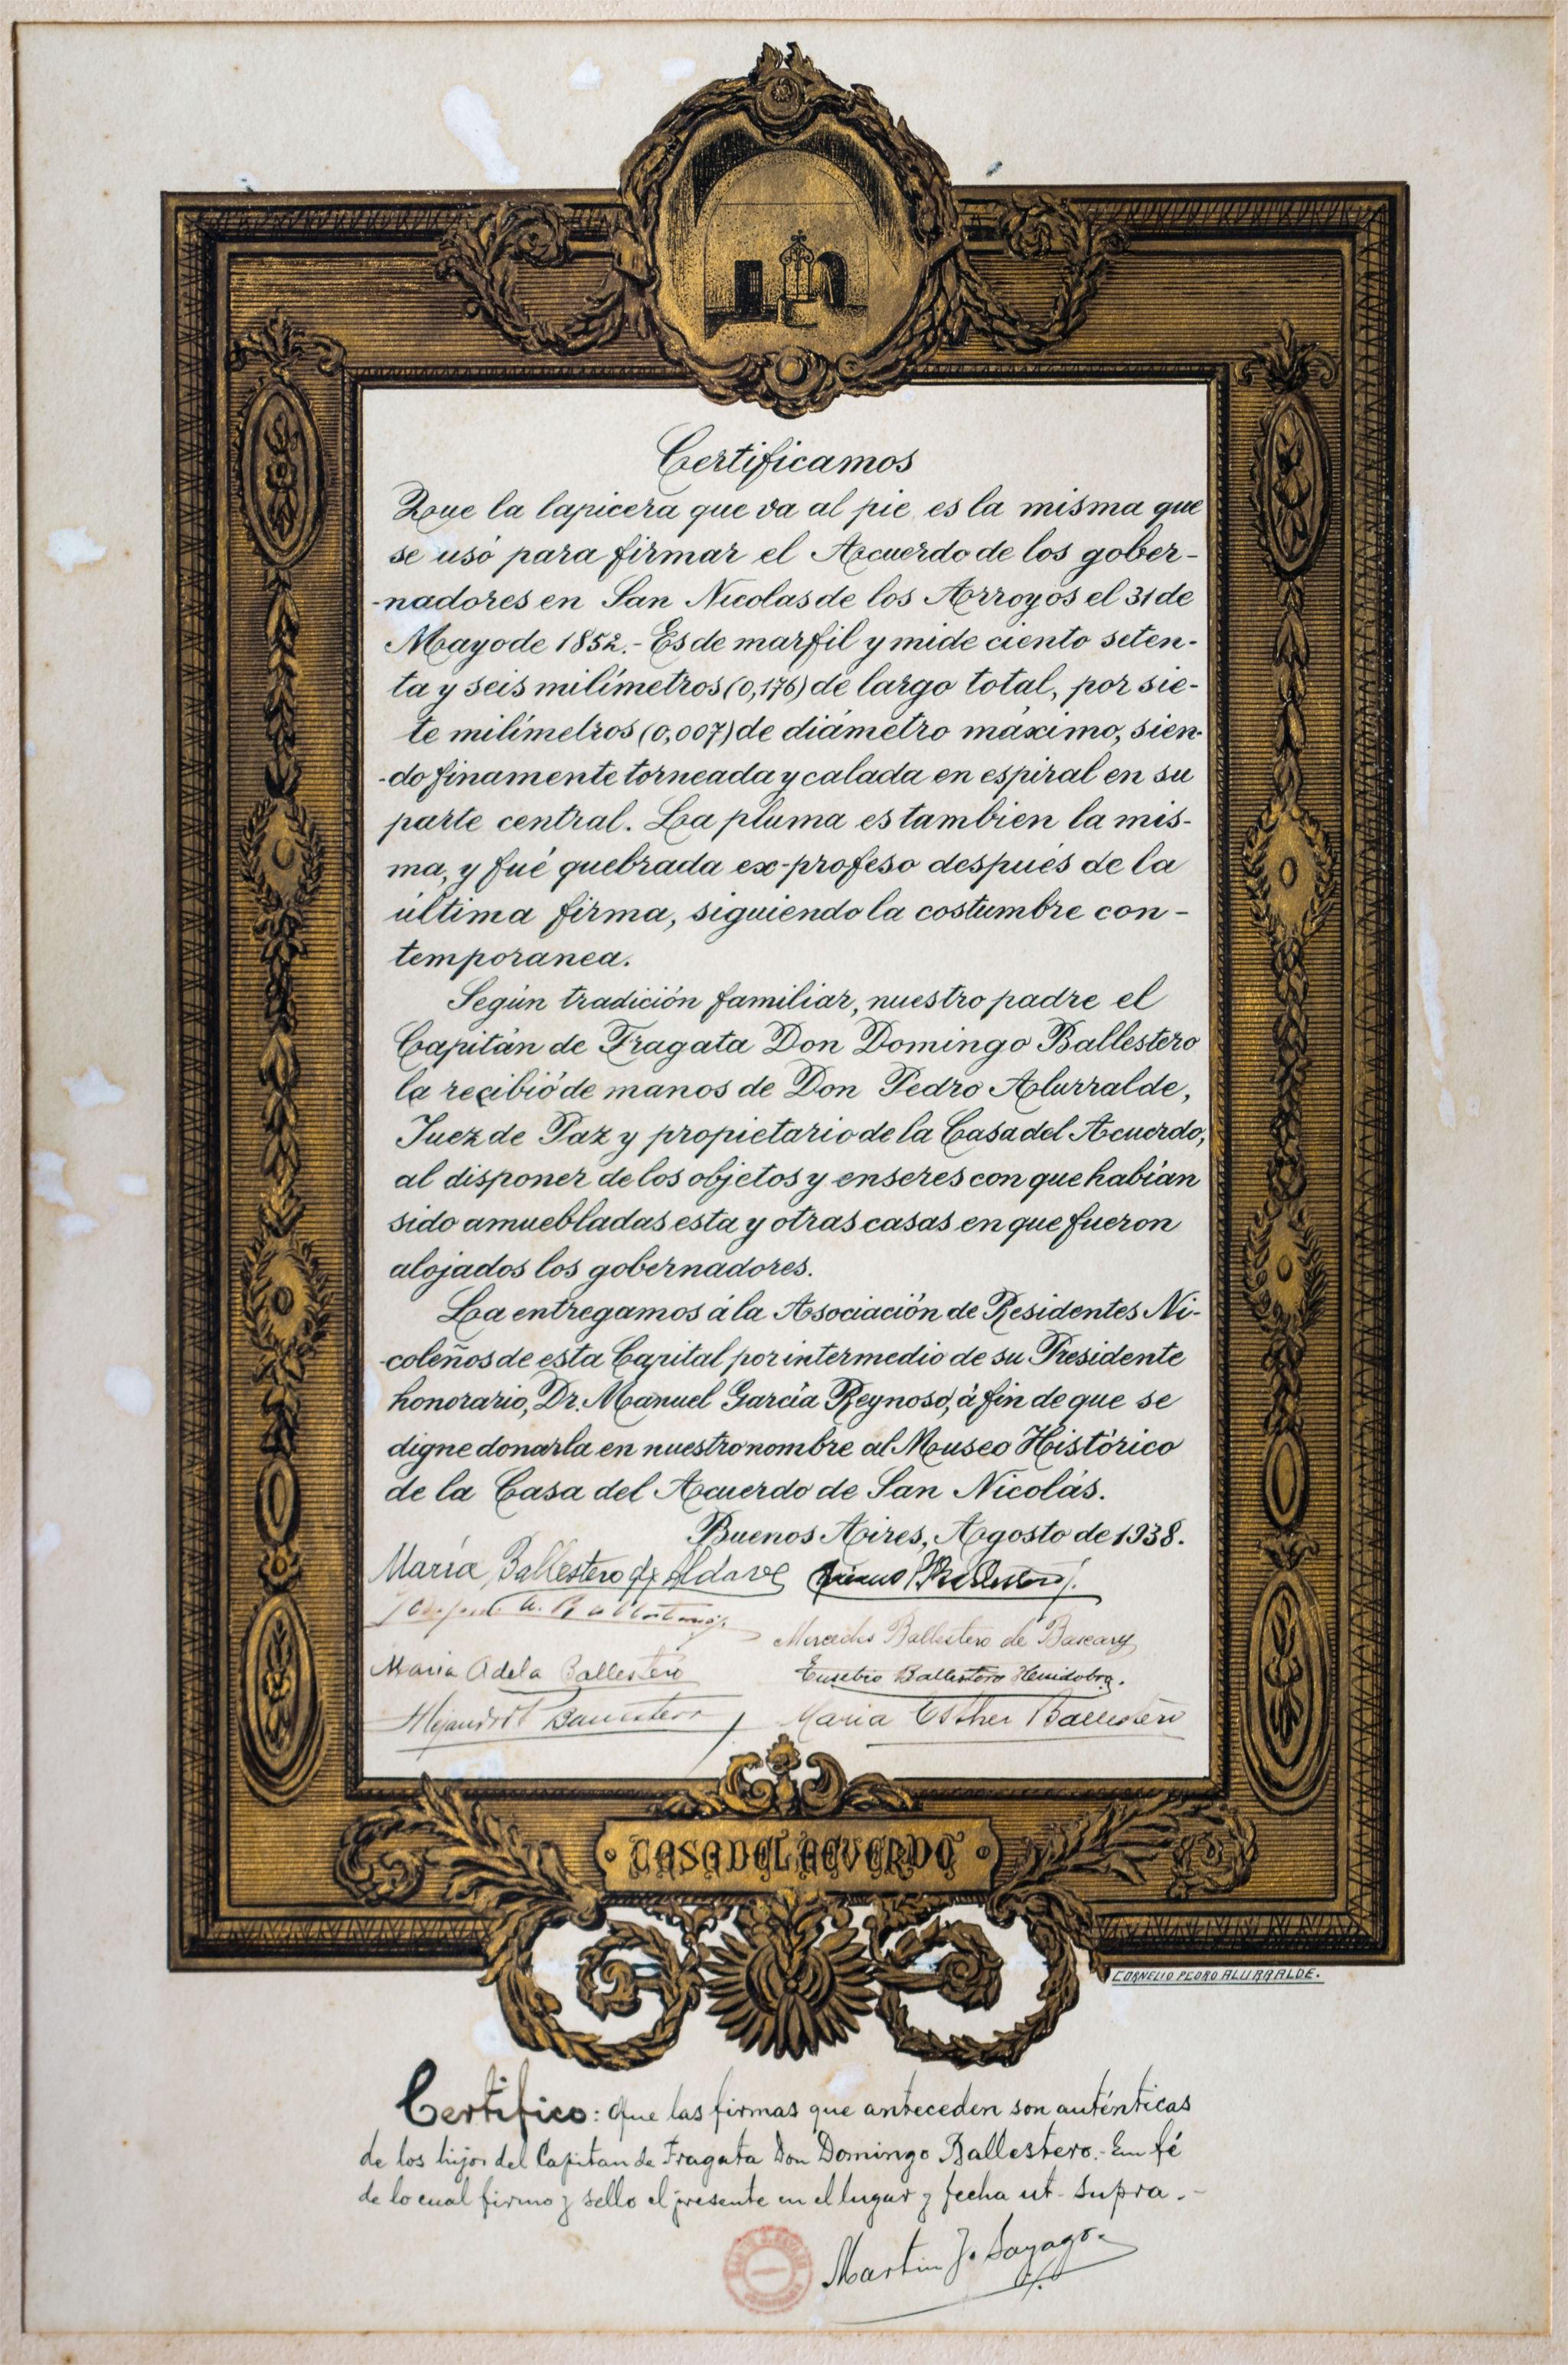 Certificamos
Que la lapicera que va al pie es la misma que
se usó para firmar el Acuerdo de los gober-
-nadores en San Nicolas de los Arroyos el 31 de
Mayo de 1852.- Es de marfil y mide ciento seten-
ta y seis milímetros (0,176) de largo total, por sie-
te milímetros (0,007) de diámetro máximo, sien-
-do finamente torneada y calada en espiral en su
parte central. La pluma es tambien la mis-
ma, y fué quebrada ex-profeso después de la
última firma, siguiendo la costumbre con-
temporanea.
Según tradición familiar, nuestro padre el
Capitán de Fragata Don Domingo Ballestero
la recibió de manos de Don Pedro Alurralde,
Juez de Paz y propietario de la Casa del Acuerdo,
al disponer de los objetos y enseres con que habían
sido amuebladas esta y otras casas en que fueron
alojados los gobernadores.
La entregamos á la Asociación de Residentes Ni-
-coleños de esta Capital por intermedio de su Presidente
honorario, Dr. Manuel García Reynoso, á fin de que se
digne donarla en nuestro nombre al Museo Histórico
de la Casa del Acuerdo de San Nicolás.
Buenos Aires, Agosto de 1938.
María Ballestero de Aldave
Mercedes Ballestero de
Maria Adela Ballestero
Eusebio Ballestero
Maria Esther Ballestero
CASA DEL ACUERDO
CORNELIO PEDRO ALURRALDE.
Certifico: Que las firmas que anteceden son auténticas
de los hijos del Capitan de Fragata Don Domingo Ballestero.- En fé
de lo cual firmo y sello el presente en el lugar y fecha ut-supra.-
Martin J. Sayago